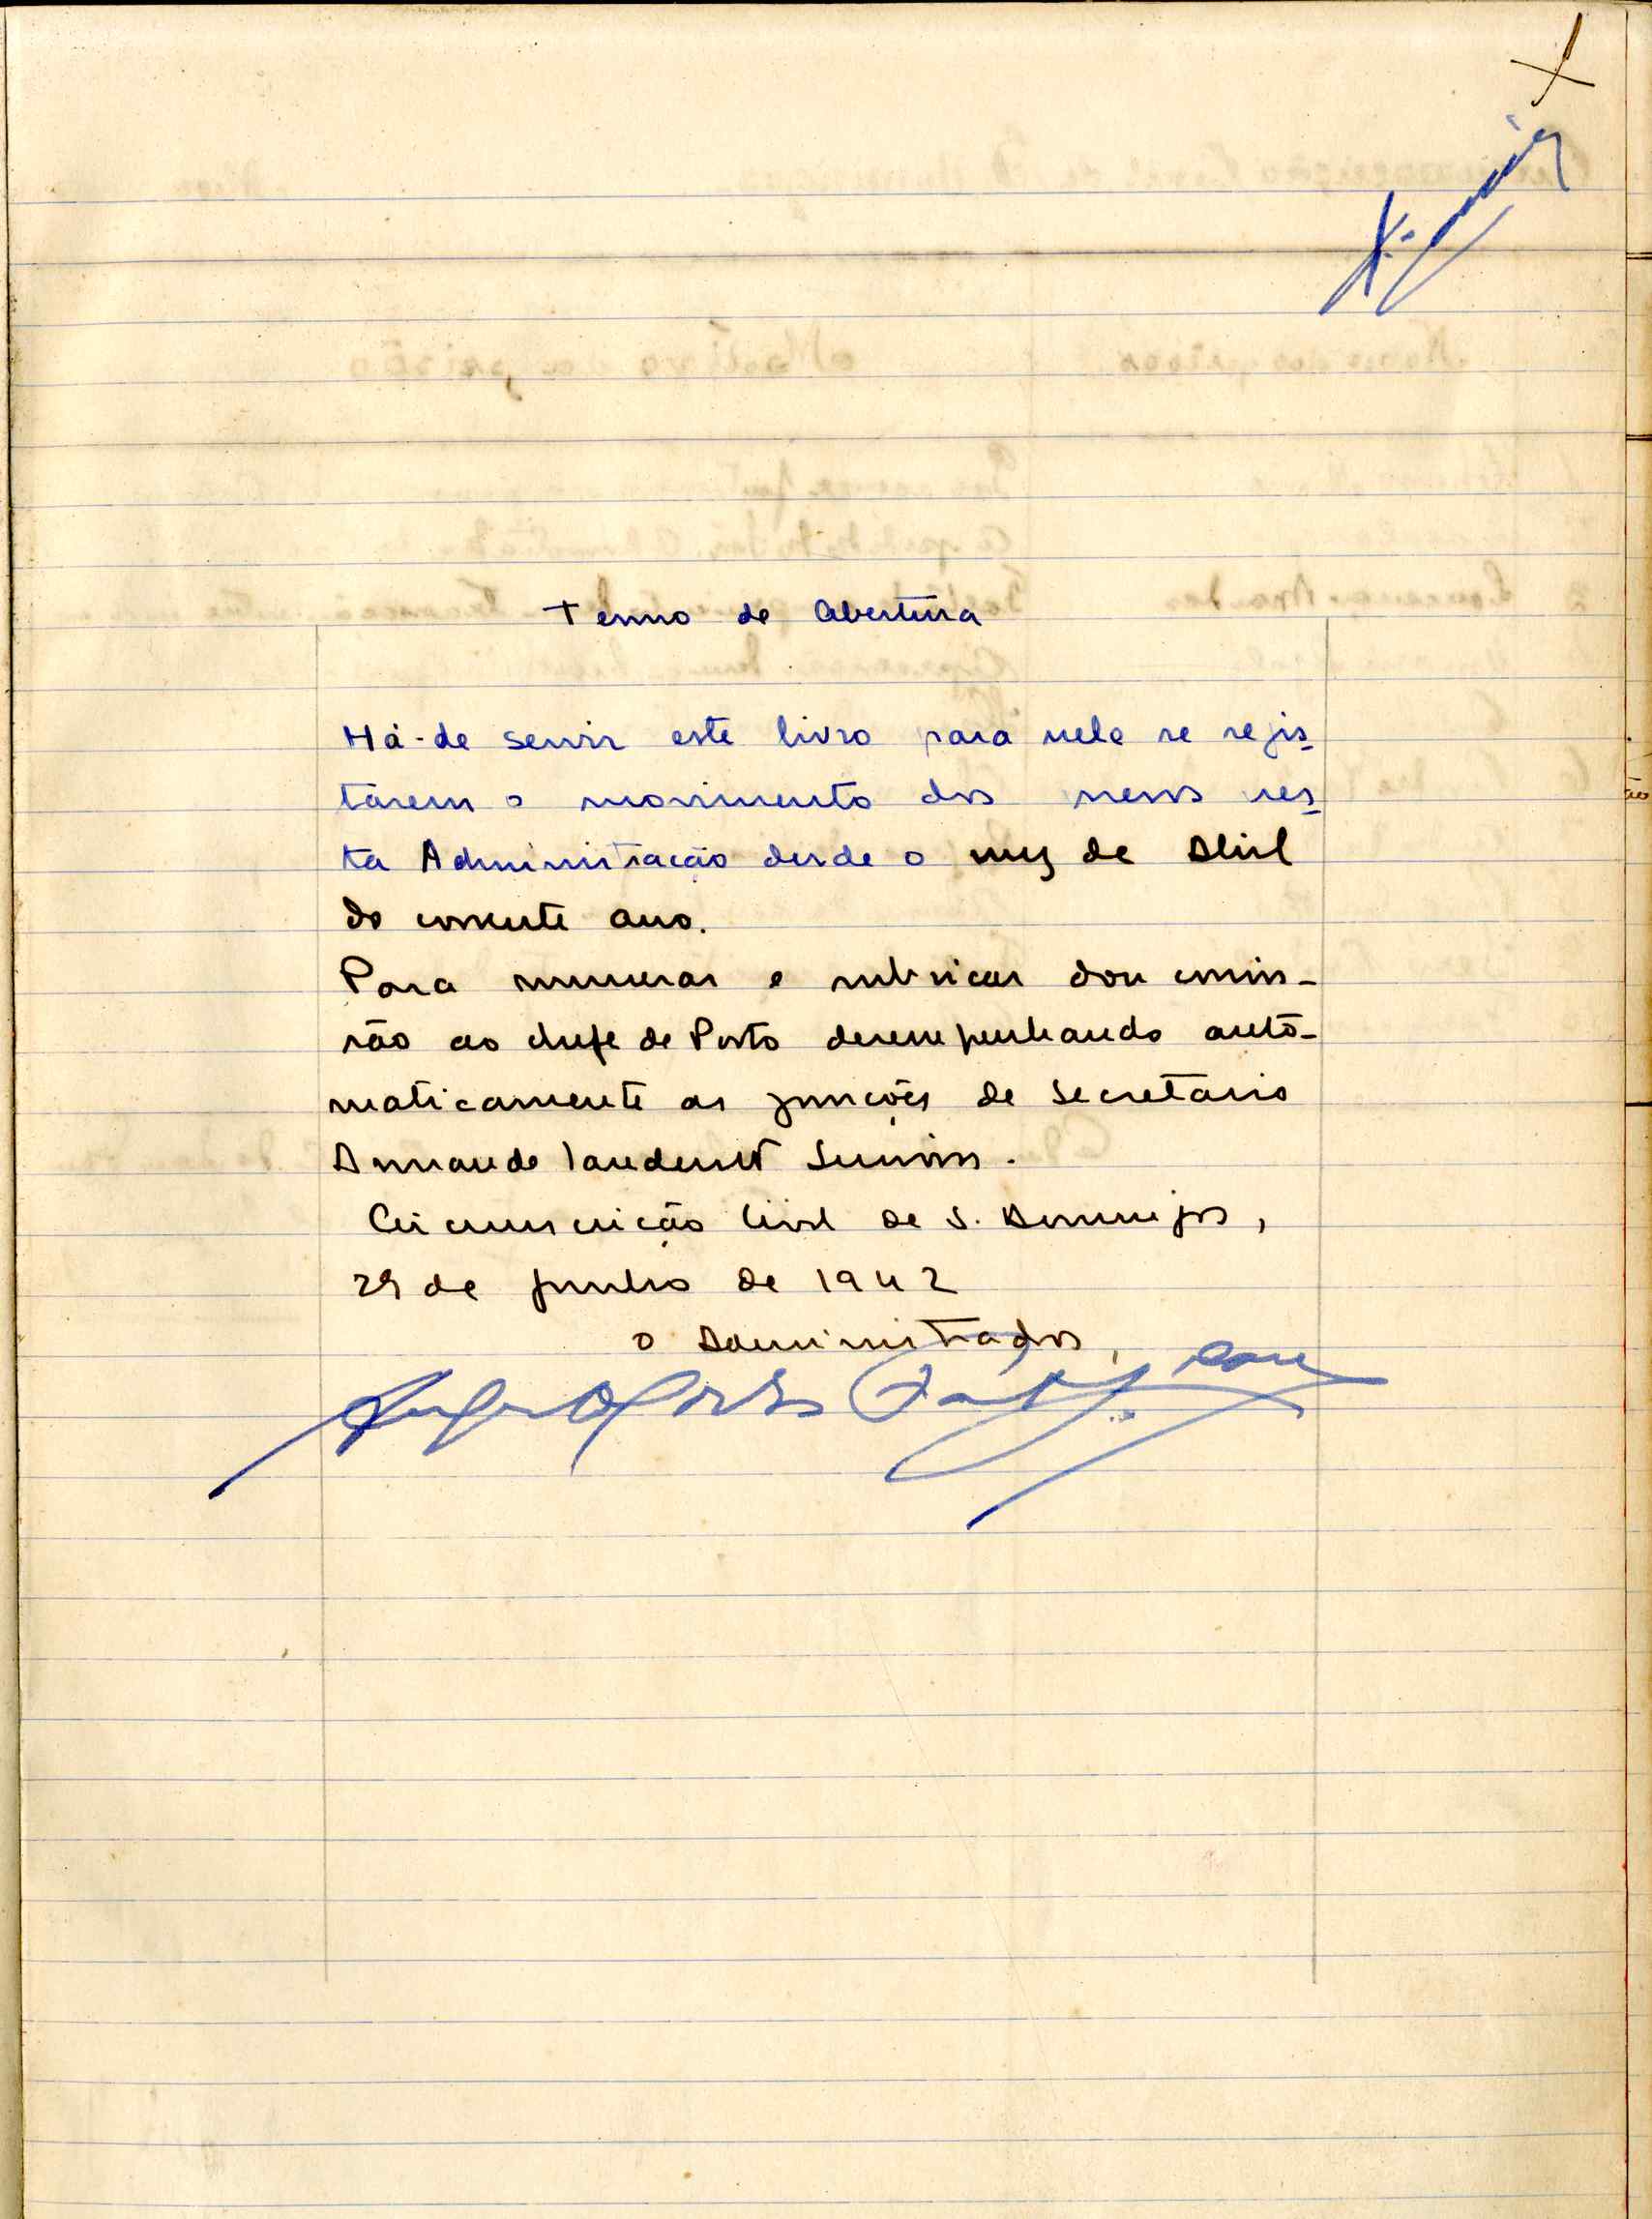 Termo de Abertura
Há-de servir este livro para nele se regis-
tarem o movimento dos presos nes-
ta Administração desde o mez de Abril
do corrente ano.
Para numerar e rubricar dou comis-
são ao chefe de Posto desempenhando autó-
maticamente as funções de Secretario
Armando
Circunscrição Civil de S. Domingos,
29 de Junho de 1942
O Administrador,